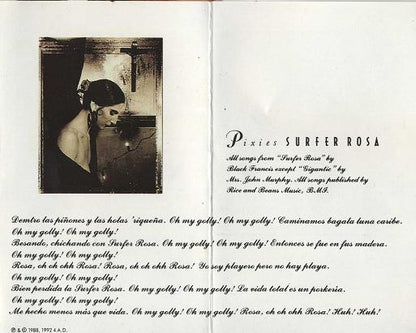 Pixies SURFER ROSA
All songs from "Surfer Rosa" by
Black Francis except "Gigantic" by
Mrs. John Murphy. All songs published by
Rice and Beans Music, B.M.I.
Demtro las piñones y las holas 'riqueña. Oh my golly! Oh my golly! Caminamos bagala tuna caribe.
Oh my golly! Oh my golly!
Besando, chichando con Surfer Rosa. Oh my golly! Oh my golly! Entonces se fue en fus madera.
Oh my golly! Oh my golly!
Rosa, oh oh ohh Rosa! Rosa, oh oh ohh Rosa! Yo soy playero pero no hay playa.
Oh my golly! Oh my golly!
Bien perdida la Surfer Rosa. Oh my golly! Oh my golly! La vida total es un porkeria.
Oh my golly! Oh my golly!
Me hecho menos más que vida. Oh my golly! Oh my golly! Rosa, oh oh ohh Rosa! Huh! Huh!
℗ & © 1988, 1992 4.A.D.